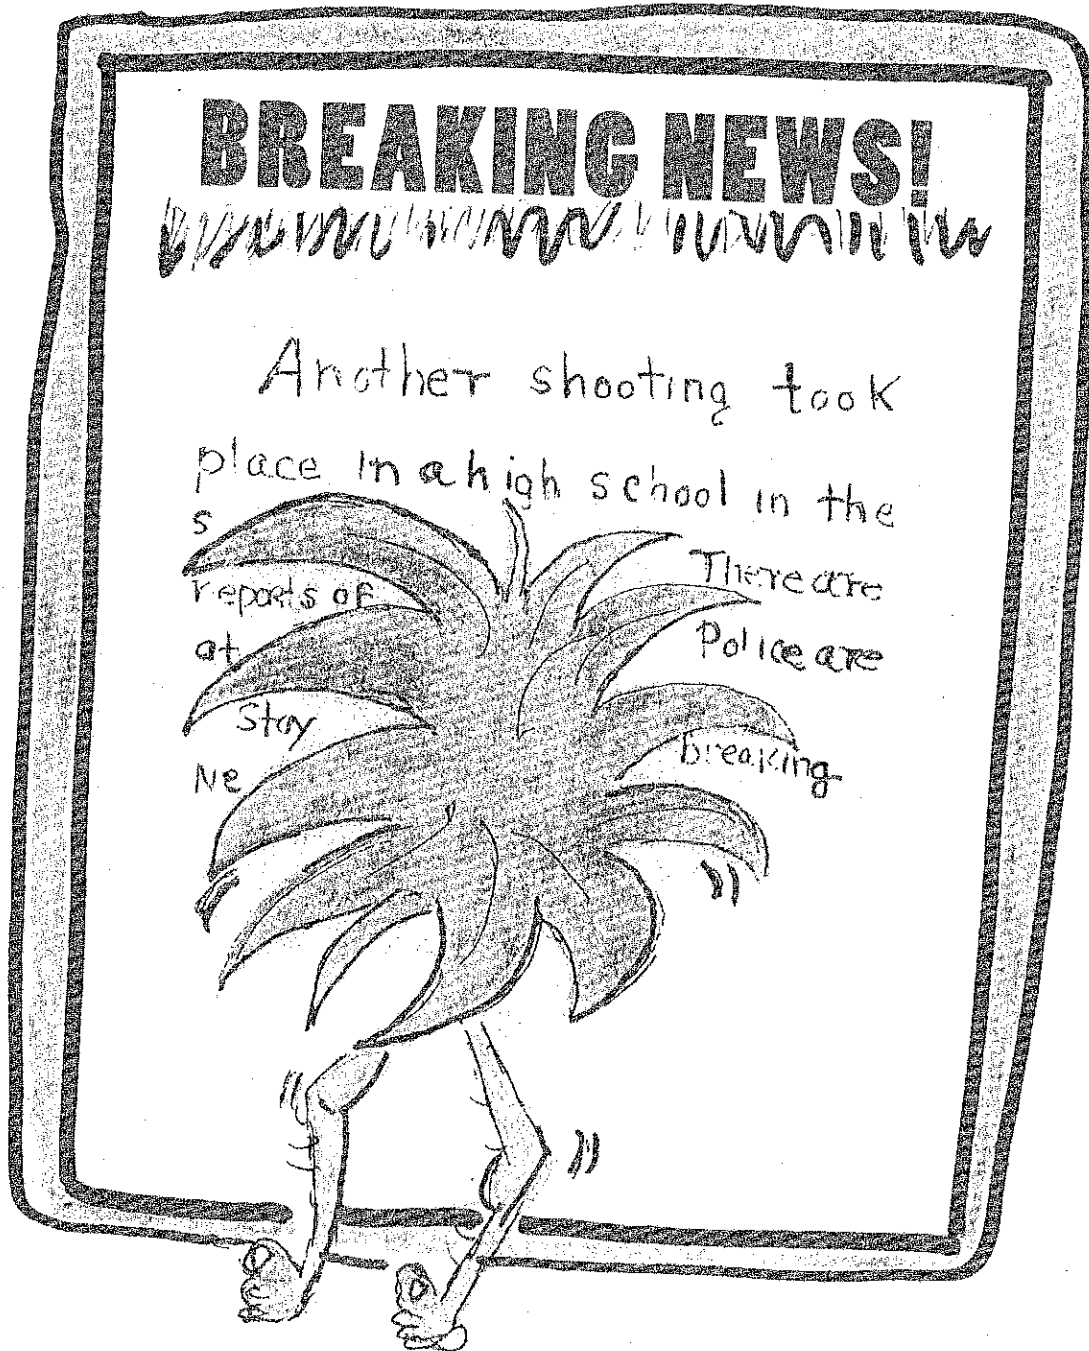 BREAKING NEWS!
Another shooting took
place in a high school in the
s
There are
reports of
Police are
at
Stay
breaking
Ne